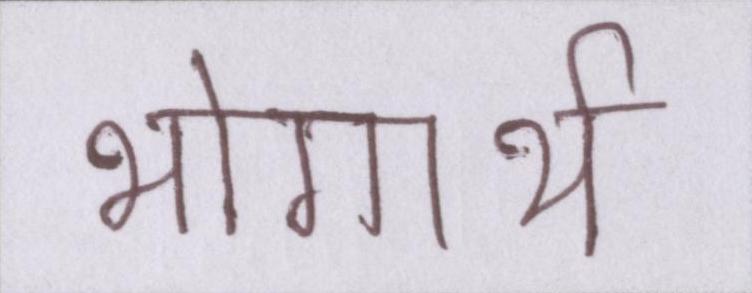 भोगार्थ